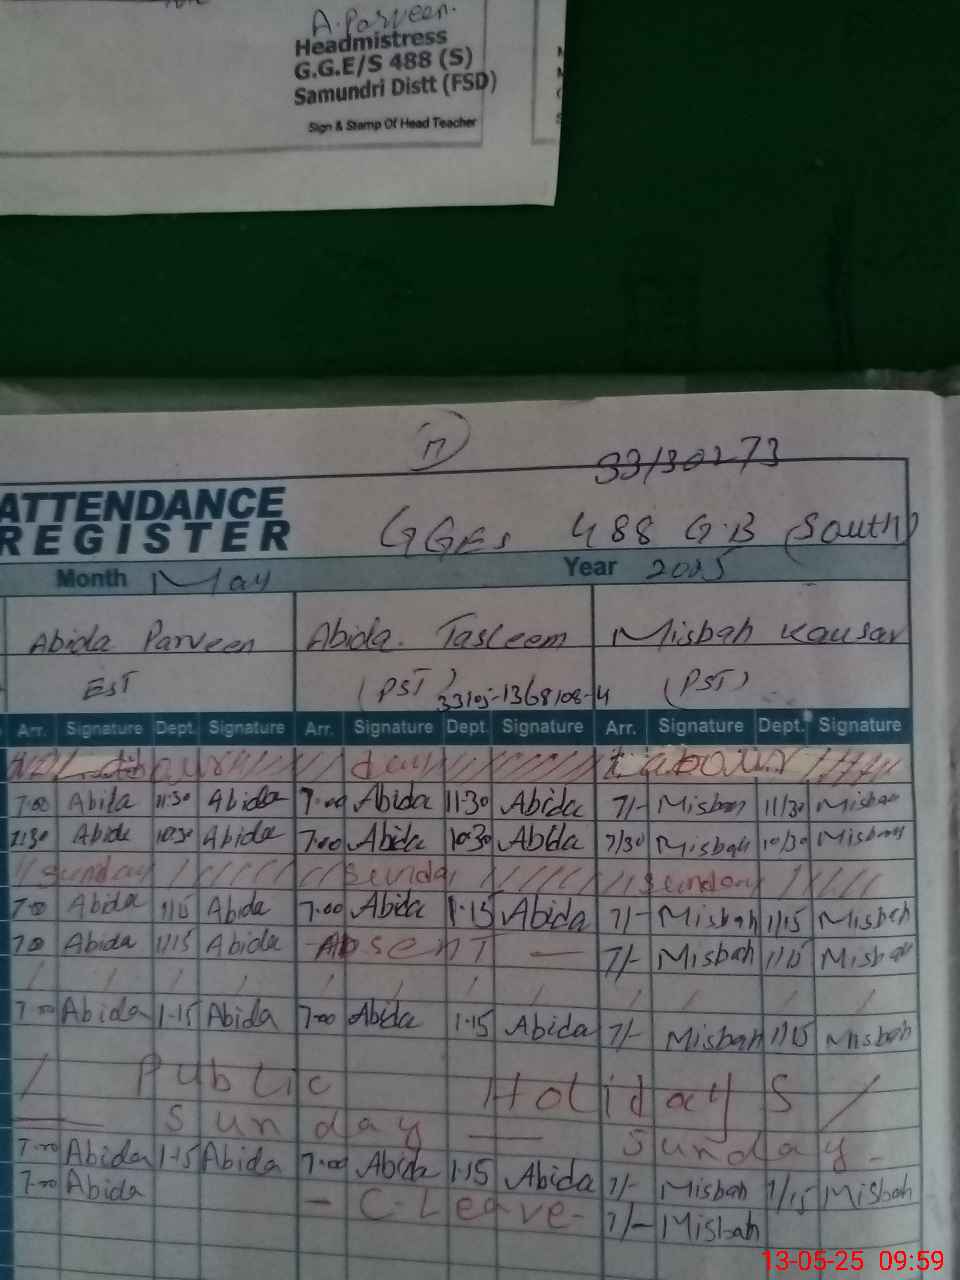 A. Parveen.
Headmistress
G.G.E/S 488 (S)
Samundri Distt (FSD)
Sign & Stamp Of Head Teacher
33130273
ATTENDANCE
REGISTER
GGES 488 G.B (South)
Month May Year 2025
Abida Parveen Abida. Tasleem Misbah Kausar
EST (PST) 33105-1368108-4 (PST)
Arr. Signature Dept. Signature Arr. Signature Dept. Signature Arr. Signature Dept. Signature
day Labour
7:00 Abida 11:30 Abida 7:00 Abida 11:30 Abida 7/- Misbah 11/30 Misbah
7:30 Abida 10:30 Abida 7:00 Abida 10:30 Abida 7/30 Misbah 10/30 Misbah
Sunday Sunday Sunday
7:00 Abida 1/15 Abida 7:00 Abida 1:15 Abida 7/- Misbah 1/15 Misbah
7:00 Abida 1/15 Abida Absent — 7/- Misbah 1/15 Misbah
7:00 Abida 1:15 Abida 7:00 Abida 1:15 Abida 7/- Misbah 1/15 Misbah
/ Public Holiday S /
Sunday — Sunday -
7:00 Abida 1:15 Abida 7:00 Abida 1:15 Abida 7/- Misbah 1/15 Misbah
7:00 Abida - C-Leave- 7/- Misbah
13-05-25 09:59